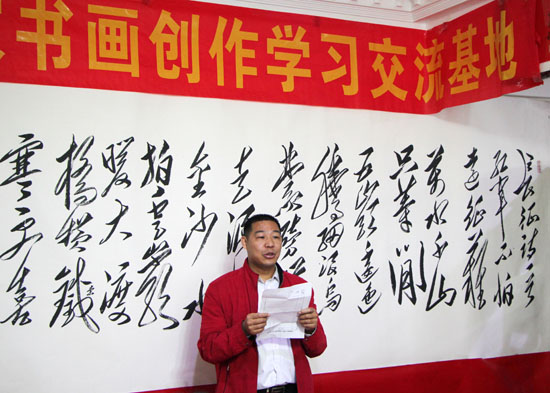 书画创作学习交流基地
红军不怕
远征难
万水千山
只等闲
五岭逶迤
腾细浪乌
蒙磅
走泥
金沙水
拍云崖
暖大渡
桥横铁
寒更喜